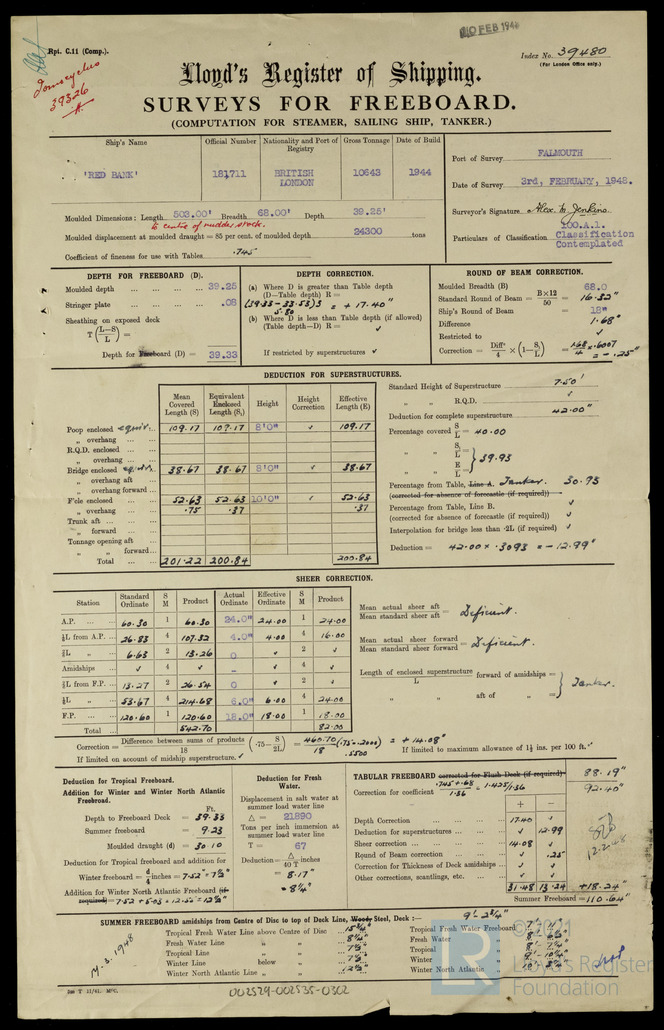 10 FEB 1948
Rpt. C.11 (Comp.).
Index No. 39480
(For London Office only.)
Domocyclus
39326
Lloyd's Register of Shipping.
SURVEYS FOR FREEBOARD.
(COMPUTATION FOR STEAMER, SAILING SHIP, TANKER.)
Ship's Name Official Number Nationality and Port of Registry Gross Tonnage Date of Build
'RED BANK' 181711 BRITISH LONDON 10643 1944
Port of Survey FALMOUTH
Date of Survey 3rd, FEBRUARY, 1948.
Surveyor's Signature Alex. M. Jenkins
Particulars of Classification 100.A.1. Classification Contemplated
Moulded Dimensions: Length 503.00' Breadth 68.00' Depth 39.25'
to centre of rudder stock.
Moulded displacement at moulded draught = 85 per cent. of moulded depth 24300 tons
Coefficient of fineness for use with Tables .745
DEPTH FOR FREEBOARD (D).
Moulded depth 39.25
Stringer plate .08
Sheathing on exposed deck
T (L-S / L) =
Depth for Freeboard (D) = 39.33
DEPTH CORRECTION.
(a) Where D is greater than Table depth
(D—Table depth) R =
(39.33 - 33.53) 3 = + 17.40"
5.80
(b) Where D is less than Table depth (if allowed)
(Table depth—D) R = ✓
If restricted by superstructures ✓
ROUND OF BEAM CORRECTION.
Moulded Breadth (B) 68.0
Standard Round of Beam = B×12 / 50 = 16.32"
Ship's Round of Beam = 18"
Difference 1.68"
Restricted to ✓
Correction = Diff. / 4 × (1 - S₁ / L) = 1.68 / 4 × .6007 = - .25"
DEDUCTION FOR SUPERSTRUCTURES.
Mean Covered Length (S) Equivalent Enclosed Length (S₁) Height Height Correction Effective Length (E)
Poop enclosed equiv. 109.17 109.17 8'0" ✓ 109.17
„ overhang
R.Q.D. enclosed
„ overhang
Bridge enclosed equiv. 38.67 38.67 8'0" ✓ 38.67
„ overhang aft
„ overhang forward
F'cle enclosed 52.63 52.63 10'0" ✓ 52.63
„ overhang .75 .37 .37
Trunk aft
„ forward
Tonnage opening aft
„ „ forward
Total 201.22 200.84 200.84
Standard Height of Superstructure 7.50'
„ „ R.Q.D. ✓
Deduction for complete superstructure 42.00"
Percentage covered S / L = 40.00
„ „ S₁ / L =
„ „ E / L = } 39.93
Percentage from Table, Line A. Tanker. 30.93
(corrected for absence of forecastle (if required))
Percentage from Table, Line B. ✓
(corrected for absence of forecastle (if required)) ✓
Interpolation for bridge less than ·2L (if required) ✓
Deduction = 42.00 × .3093 = - 12.99"
SHEER CORRECTION.
Station Standard Ordinate S M Product Actual Ordinate Effective Ordinate S M Product
A.P. 60.30 1 60.30 24.0" 24.00 1 24.00
⅙L from A.P. 26.83 4 107.32 4.0" 4.00 4 16.00
⅓L „ 6.63 2 13.26 0 ✓ 2 ✓
Amidships ✓ 4 ✓ - ✓ 4 ✓
⅓L from F.P. 13.27 2 26.54 0 ✓ 2 ✓
⅙L „ 53.67 4 214.68 6.0" 6.00 4 24.00
F.P. 120.60 1 120.60 18.0" 18.00 1 18.00
Total 542.70 82.00
Mean actual sheer aft / Mean standard sheer aft = Deficient.
Mean actual sheer forward / Mean standard sheer forward = Deficient.
Length of enclosed superstructure / L forward of amidships =
„ „ aft of „ = } Tanker.
Correction = Difference between sums of products / 18 (·75 - S / 2L) = 460.70 / 18 (.75 - .2000) = + 14.08"
.5500
If limited on account of midship superstructure. ✓
If limited to maximum allowance of 1½ ins. per 100 ft. ✓
Deduction for Tropical Freeboard.
Addition for Winter and Winter North Atlantic Freeboard.
Ft.
Depth to Freeboard Deck = 39.33
Summer freeboard = 9.23
Moulded draught (d) = 30.10
Deduction for Tropical freeboard and addition for
Winter freeboard = d / 4 inches = 7.52" = 7½"
Addition for Winter North Atlantic Freeboard (if required) = 7.52 + 5.03 = 12.55" = 12½"
Deduction for Fresh Water.
Displacement in salt water at summer load water line
△ = 21890
Tons per inch immersion at summer load water line
T = 67
Deduction = △ / 40 T inches
= 8.17"
= 8¼"
TABULAR FREEBOARD corrected for Flush Deck (if required) 88.19"
Correction for coefficient .745 + .68 / 1.36 = 1.425/1.36 92.40"
+ -
Depth Correction 17.40 ✓
Deduction for superstructures ✓ 12.99
Sheer correction 14.08 ✓
Round of Beam correction ✓ .25
Correction for Thickness of Deck amidships ✓ ✓
Other corrections, scantlings, etc. ✓ ✓
31.48 13.24 +18.24"
Summer Freeboard = 110.64"
12.2.48
SUMMER FREEBOARD amidships from Centre of Disc to top of Deck Line, Wood, Steel, Deck :— 9'-2¾"
Tropical Fresh Water Line above Centre of Disc 15¾"
Fresh Water Line „ „ 8¼"
Tropical Line „ „ 7½"
Winter Line below „ 7½"
Winter North Atlantic Line „ „ 12½"
Tropical Fresh Water Freeboard
Fresh Water „
Tropical „
Winter „
Winter North Atlantic „
17.3.1948
2m T 11/41. MFC.
002529-002535-0302
© 2021
LR
Lloyd's Register
Foundation